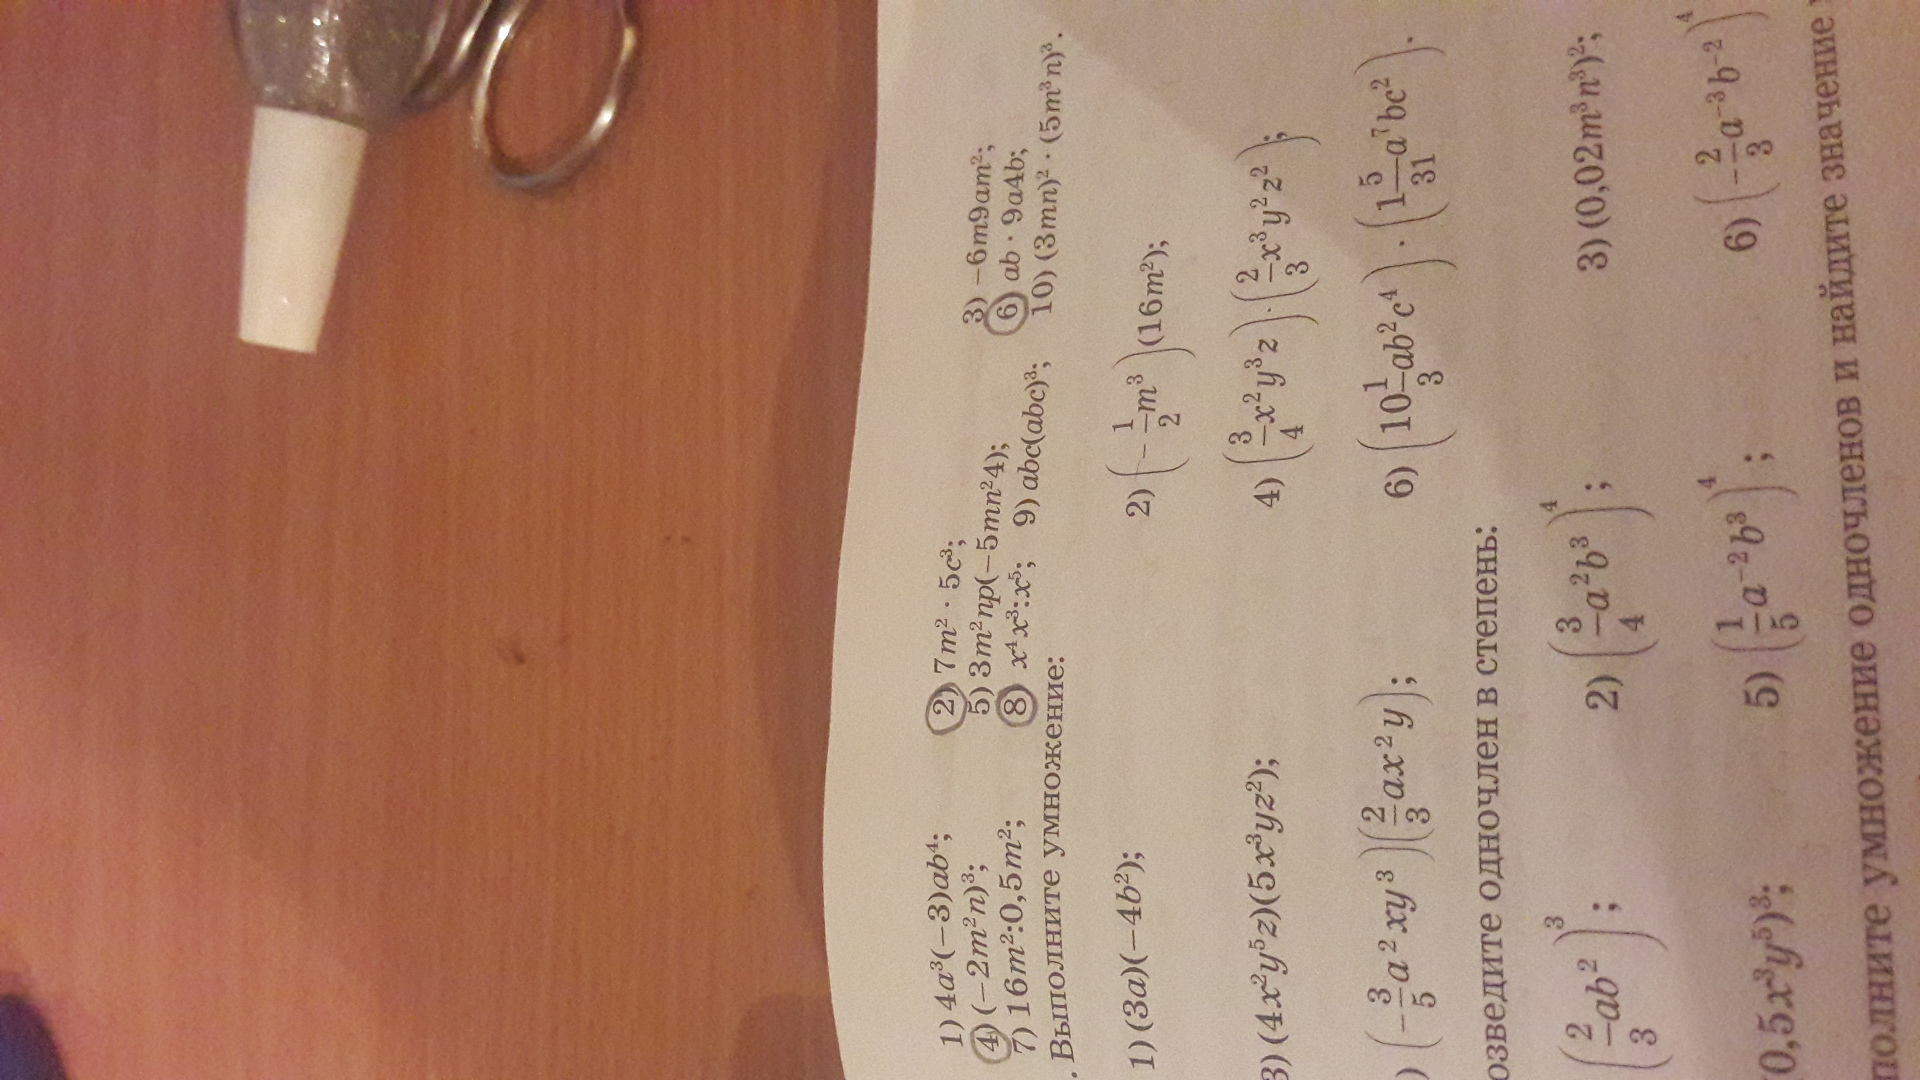 1) 4a³(−3)ab⁴; 2) 7m² · 5c³; 3) −6m9am²;
4) (−2m²n)³; 5) 3m²np(−5mn²4); 6) ab · 9a4b;
7) 16m²:0,5m²; 8) x⁴x³:x⁵; 9) abc(abc)³; 10) (3mn)² · (5m³n)³.
. Выполните умножение:
1) (3a)(−4b²); 2) (−1/2 m³)(16m²);
3) (4x²y⁵z)(5x³yz²); 4) (3/4 x²y³z) · (2/3 x³y²z²);
) (−3/5 a²xy³)(2/3 ax²y); 6) (10 1/3 ab²c⁴) · (1 5/31 a⁷bc²).
озведите одночлен в степень:
(2/3 ab²)³; 2) (3/4 a²b³)⁴; 3) (0,02m³n³)²;
0,5x³y⁵)³; 5) (1/5 a⁻²b³)⁴; 6) (−2/3 a⁻³b⁻²)⁴
полните умножение одночленов и найдите значение